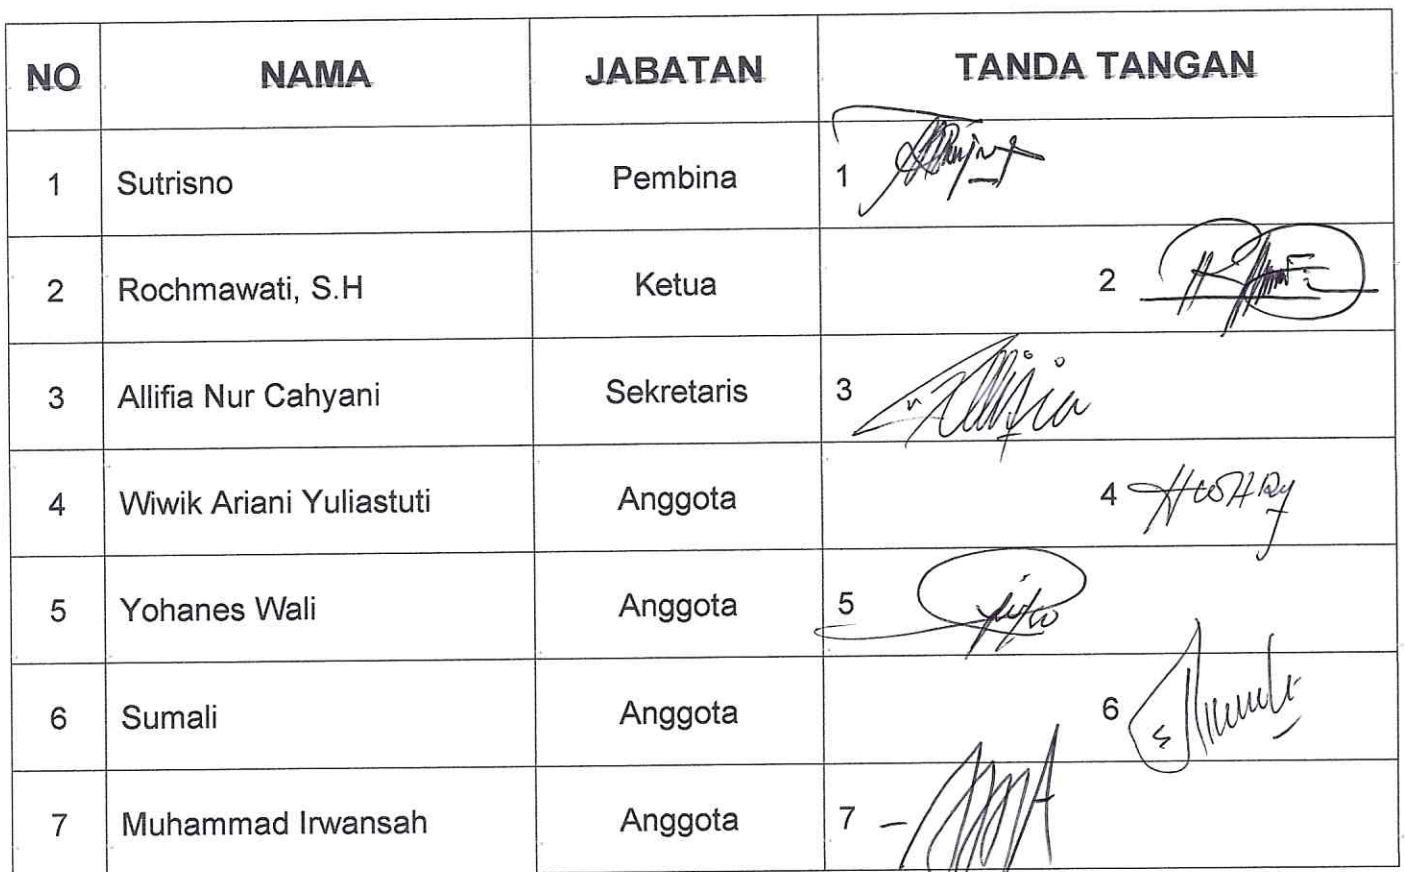 NO NAMA JABATAN TANDA TANGAN
1 Sutrisno Pembina 1
2 Rochmawati, S.H Ketua 2
3 Allifia Nur Cahyani Sekretaris 3
4 Wiwik Ariani Yuliastuti Anggota 4
5 Yohanes Wali Anggota 5
6 Sumali Anggota 6
7 Muhammad Irwansah Anggota 7